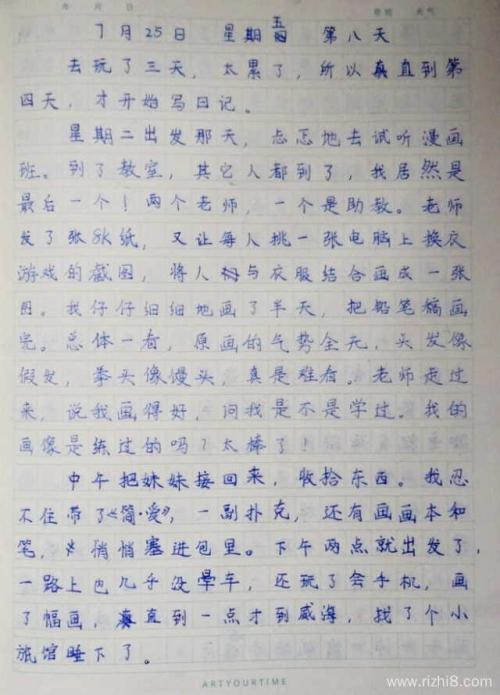 年 月 日 星期 天气
7月25日 星期五 第八天
去玩了三天，太累了，所以直到第
四天，才开始写日记。
星期二出发那天，忐忑地去试听漫画
班。到了教室，其它人都到了，我居然是
最后一个！两个老师，一个是助教。老师
发了张8K纸，又让每人挑一张电脑上换衣
游戏的截图，将人物与衣服结合画成一张
图。我仔仔细细地画了半天，把铅笔稿画
完。总体一看，原画的气势全无，头发像
假发，拳头像馒头，真是难看。老师走过
来，说我画得好，问我是不是学过。我的
画像是练过的吗？太棒了！
中午把妹妹接回来，收拾东西。我忍
不住带了《简·爱》，一副扑克，还有画画本和
笔，悄悄塞进包里。下午两点就出发了，
一路上也几乎没晕车，还玩了会手机，画
了幅画，直到一点才到威海，找了个小
旅馆睡下了。
ARTYOURTIME
www.rizhi8.com